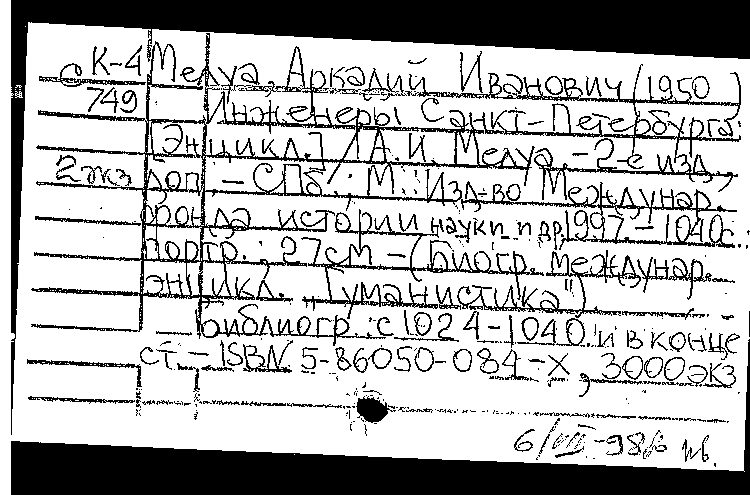 К-4 Мелуа, Аркадий Иванович (1950 )
с
749 Инженеры Санкт-Петербурга:
[Энцикл.] / А.И. Мелуа. - 2-е изд.,
2экз доп. - СПб.; М.: Изд-во Междунар.
фонда истории науки и др, 1997. - 1040с.:
портр.; 27см - (Биогр. междунар.
энцикл. "Гуманистика").
Библиогр.: с1024-1040 и в конце
ст. - ISBN 5-86050-084-X, 3000экз
6/VII-98